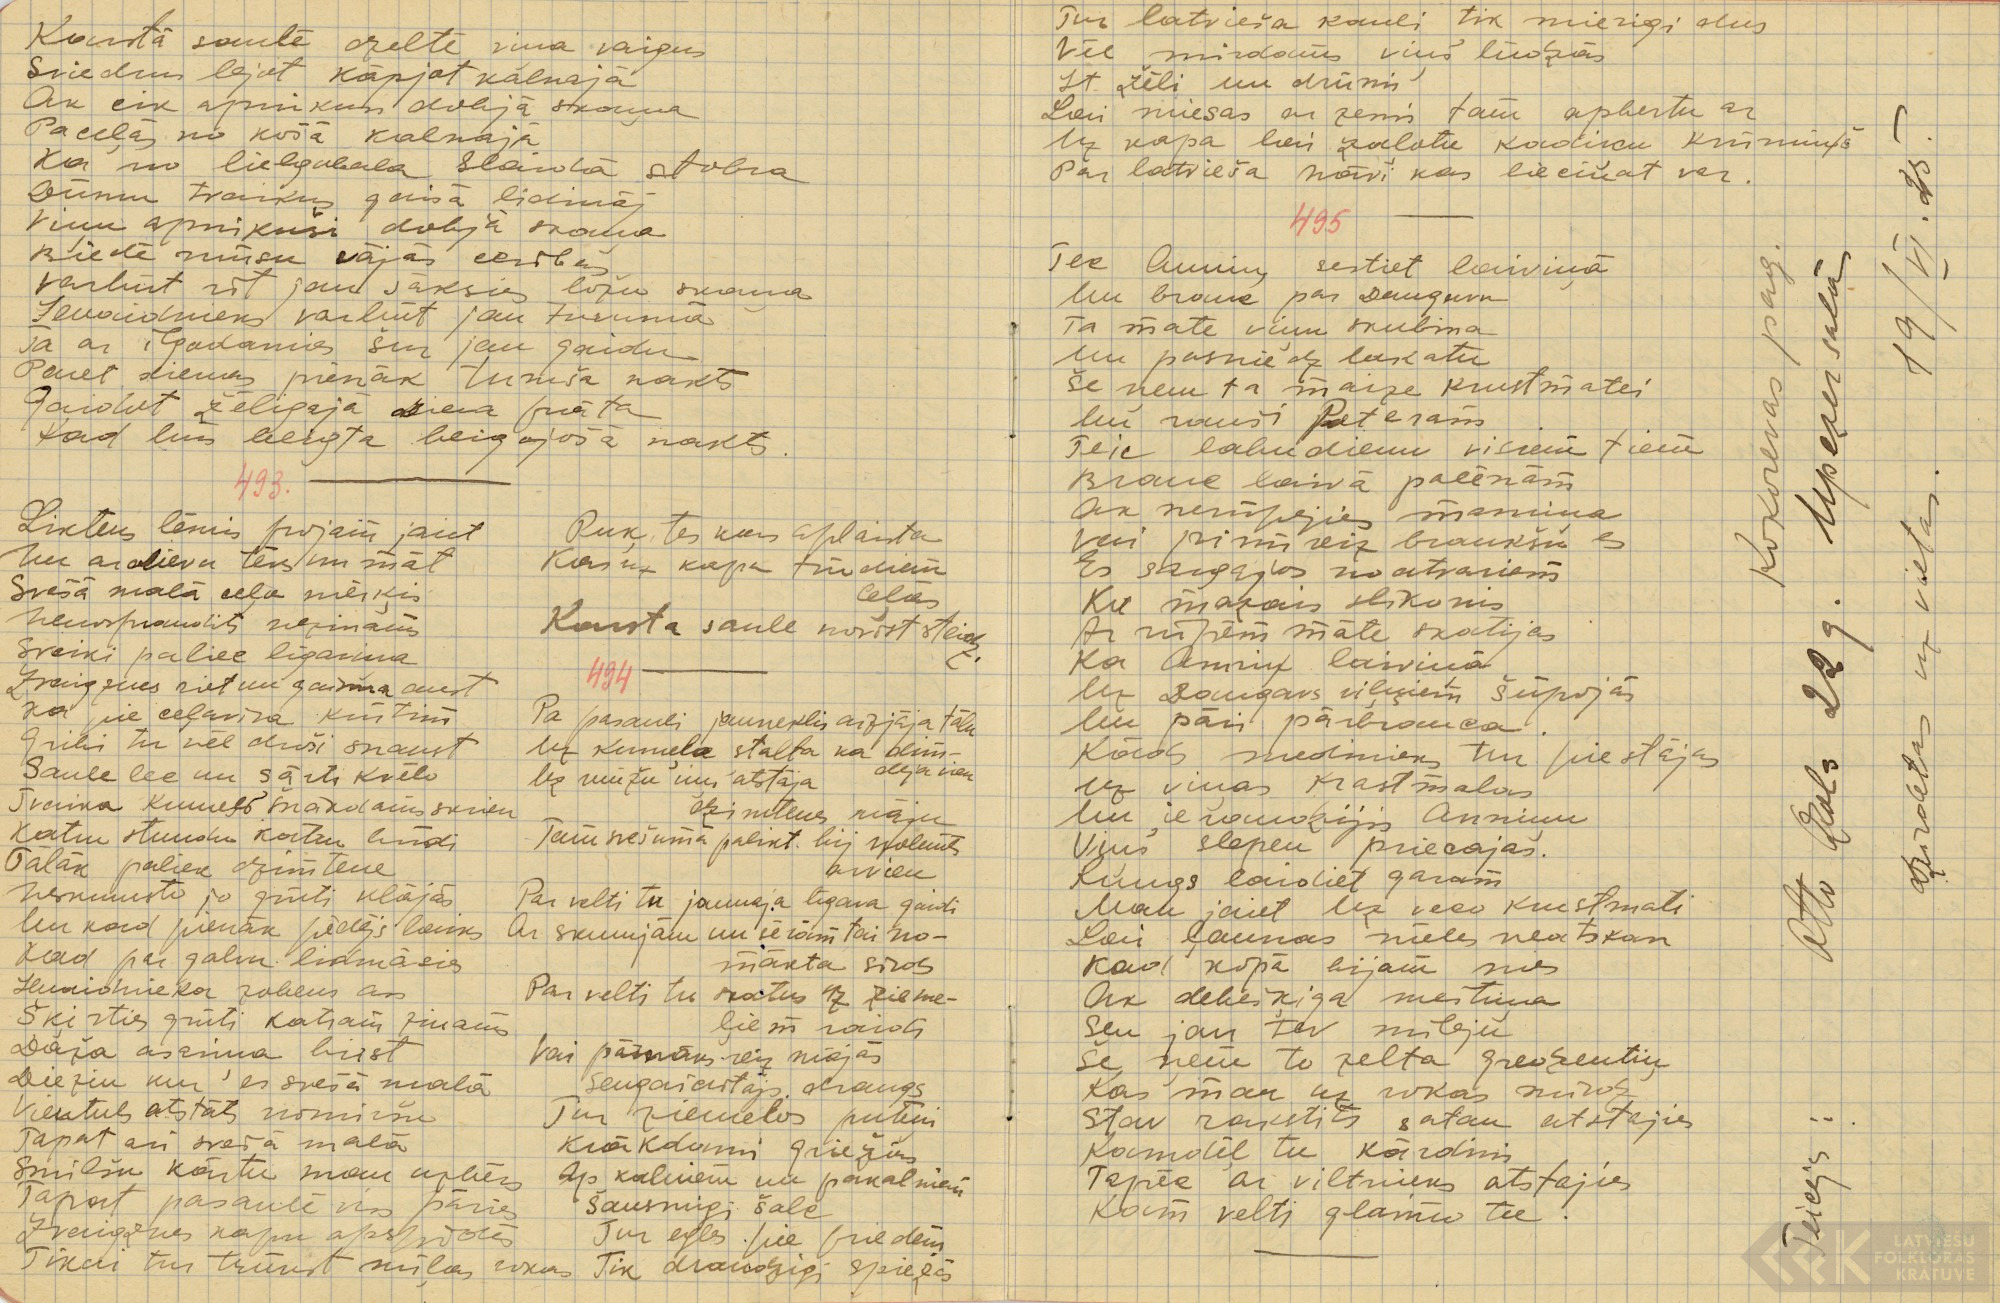 Karstā saule dzelte viņa vaigus
Sviedrus lejot kāpjot kalnajā
Ak cik apnikusi dobjā skaņa
Pacēlās no košā kalnajā
Ka no lielgabala slaidā stobra
Dūmu tvaikus gaisā lidināj
Viņu apnikuši dobjā skaņa
Biedē mūsu vājās cerības
Varbūt rīt jau sāksies ložu skaņa
Ienaidnieks varbūt jau tuvumā
Tā ar ilgodamies šur jau gaidu
Paiet dienas pienāk tumša nakts
Gaidot žēligajā diena prāta
Kad būs beigta beigajošā nakts.
493.
Liktens lēmis projam jaiet
Un ardievu tēvs un māt
Svešā malā ceļa mērķis
Nenospraudits nezināms
Sveiki paliec ligaviņa
Zvaigznes riet un gaisma aust
Ka pie ceļavira krūtīm
Gribi tu vēl droši snaust
Saule lec un sārti kvēlo
Tvaika kumeļš šņākdams skrien
Katru stundu katru brīdi
Tālāk paliek dzimtene
Neskumsto jo grūti klājās
Un kad pienāk pēdējs laiks
Kad par galvu līdināsies
Ienaidnieka zobens ass
Šķirties grūti katram zināms
Dāža asariņa birst
Diezin kur es svešā malā
Vientuls atstāts nomiršu
Tāpat arī svešā malā
Smilšu kārtu man uzbērs
Tāpat pasaulē viss pāries
Zvaigznes kapu apspīdēs
Tikai tur trūkst mīļas rokas
Puķītes kas aplaista
Kas uz kapa tūdien
ceļas
Karsta saule novīst steidz.
494
Pa pasauli jauneklis aizjāja tālu
Uz kumeļa stalta ka dim-
deja vien
Uz mūžu viņš atstāja
dzimtenes māju
Tam svešumā palikt bij nolemts
arvien
Par velti tu jaunaja līgava gaidi
Ar skumjām un sērām tai no-
mākta sirds
Par velti tu skatus uz zieme-
ļiem raidi
Vai pārnāks reiz mājās
sengaidītājs draugs
Tur ziemeļos puteņi
krākdami griežas
Ap kalniem un pakalniem
šausmīgi šalc
Tur egles pie priedēm
Tik draudzīgi spiežās
Tur latvieša kauli tik mierigi dus
Vēl mirdams viņš lūdzās
It žēli un drūmi
Lai miesas ar zemi tam apbertu ar
Uz kapa lai zaļotu kadiķu krūmiņš
Par latvieša nāvi kas liecināt var.
495
Tec Anniņ sestiet laiviņā
Un brauc par Daugavu
Tā māte viņu skubina
Un pasniedz lakatu
Še ņem tā maize krustmātei
Un rauši Pēteram
Teic labudienu visiem tiem
Brauc laivā palēnām
Ak nerūpējies māmiņa
Vai pirmreiz braukšu es
Es sargājos no atvariem
Ku mazais slikonis
Ar rūpēm māte skatijas
Ka Anniņ laiviņā
Uz Daugavs vilņiem šūpojās
Un pāri pārbrauca.
Kāds medinieks tur piestājas
Uz viņas krastmalas
Un ieraudzijis Anniņu
Viņš slepen priecajas.
Kungs laidiet garam
Man jaiet uz veco krustmāti
Lai ļaunas mēles neatskan
Kad kopā bijam mēs
Ak debešķiga meitiņa
Sen jau tev mīleju
Še ņem to zelta gredzentiņ
Kas man uz rokas mirdz
Stav rakstīts satan atstājies
Kamdēl tu kārdini
Tapēc ar viltnieks atstājies
Kam velti glaimo tu.
Teicējs: Otto Ozols 22 g. Kokneses pag. Upespersalā
dzirdētas uz vietas. 19/VI.25.
LATVIEŠU
FOLKLORAS
KRĀTUVE